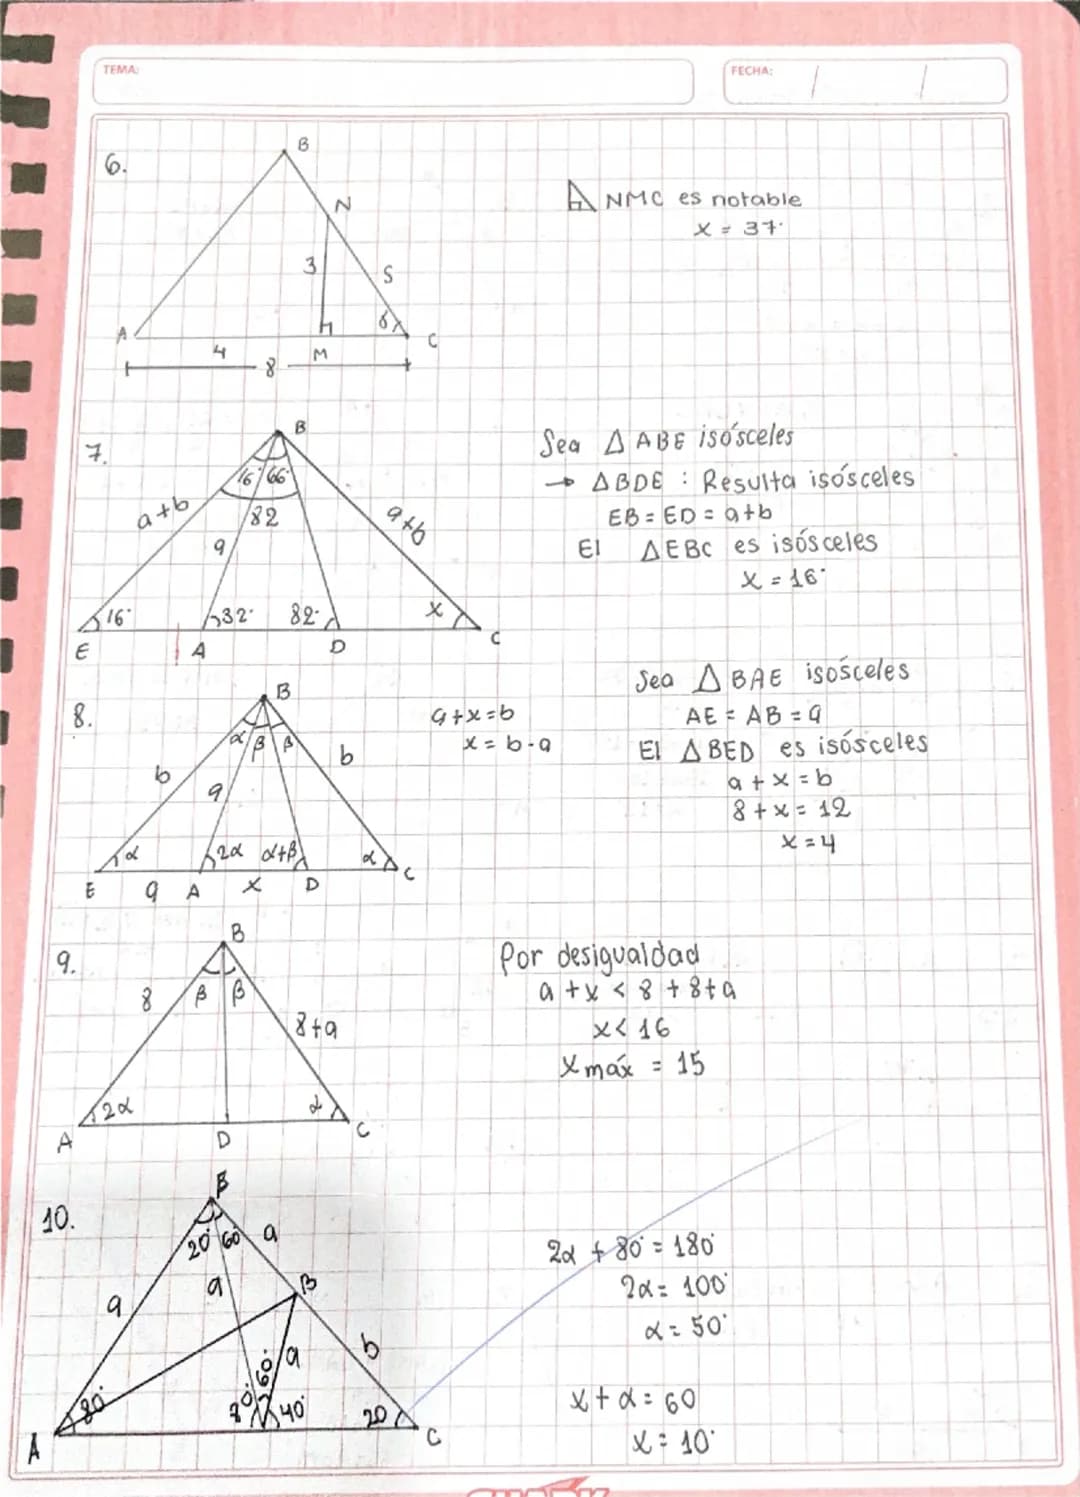 TEMA:
FECHA: / /
6.
B
N
3
S
A
4
M
8
C
NMC es notable
x = 37°
7.
B
16° 66°
82
a+b
9
a+b
16°
32°
82°
x
E
A
D
C
Sea △ ABE isósceles
→ △BDE : Resulta isósceles
EB = ED = a+b
El △EBC es isósceles
x = 16°
8.
B
α β β
b
a
b
α
2α
α+β
α
E
a
A
x
D
C
a+x=b
x = b-a
Sea △ BAE isósceles
AE = AB = a
El △BED es isósceles
a + x = b
8 + x = 12
x = 4
9.
B
8
β β
8+a
2α
α
A
D
C
Por desigualdad
a + x < 8 + 8+a
x < 16
x máx = 15
10.
B
20° 60°
a
a
a
B
a
b
80°
60°
80°
40°
20
A
C
2α + 80° = 180°
2α = 100°
α = 50°
x + α = 60
x = 10°